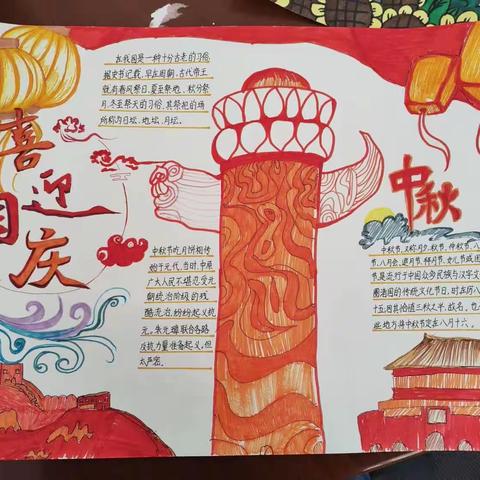 喜迎
国庆
在我国是一种十分古老的习俗
据史书记载,早在周朝,古代帝王
就有春风祭日、夏至祭地、秋分祭
月、冬至祭天的习俗,其祭祀的场
所称为日坛、地坛、月坛。
中秋节吃月饼相传
始于元代,当时,中原
广大人民不堪忍受元
朝统治阶级的残
酷统治,纷纷起义抗
元,朱元璋联合各路
反抗力量准备起义,但
太严密。
中秋
中秋节,又称月夕、秋节、仲秋节、八
节、八月会、追月节、拜月节、女儿节或团
节是流行于中国众多民族与汉字文
圈诸国的传统文化节日,时在厉八
十五;因其恰值三秋之半,故名,也
些地方将中秋节定在八月十六。